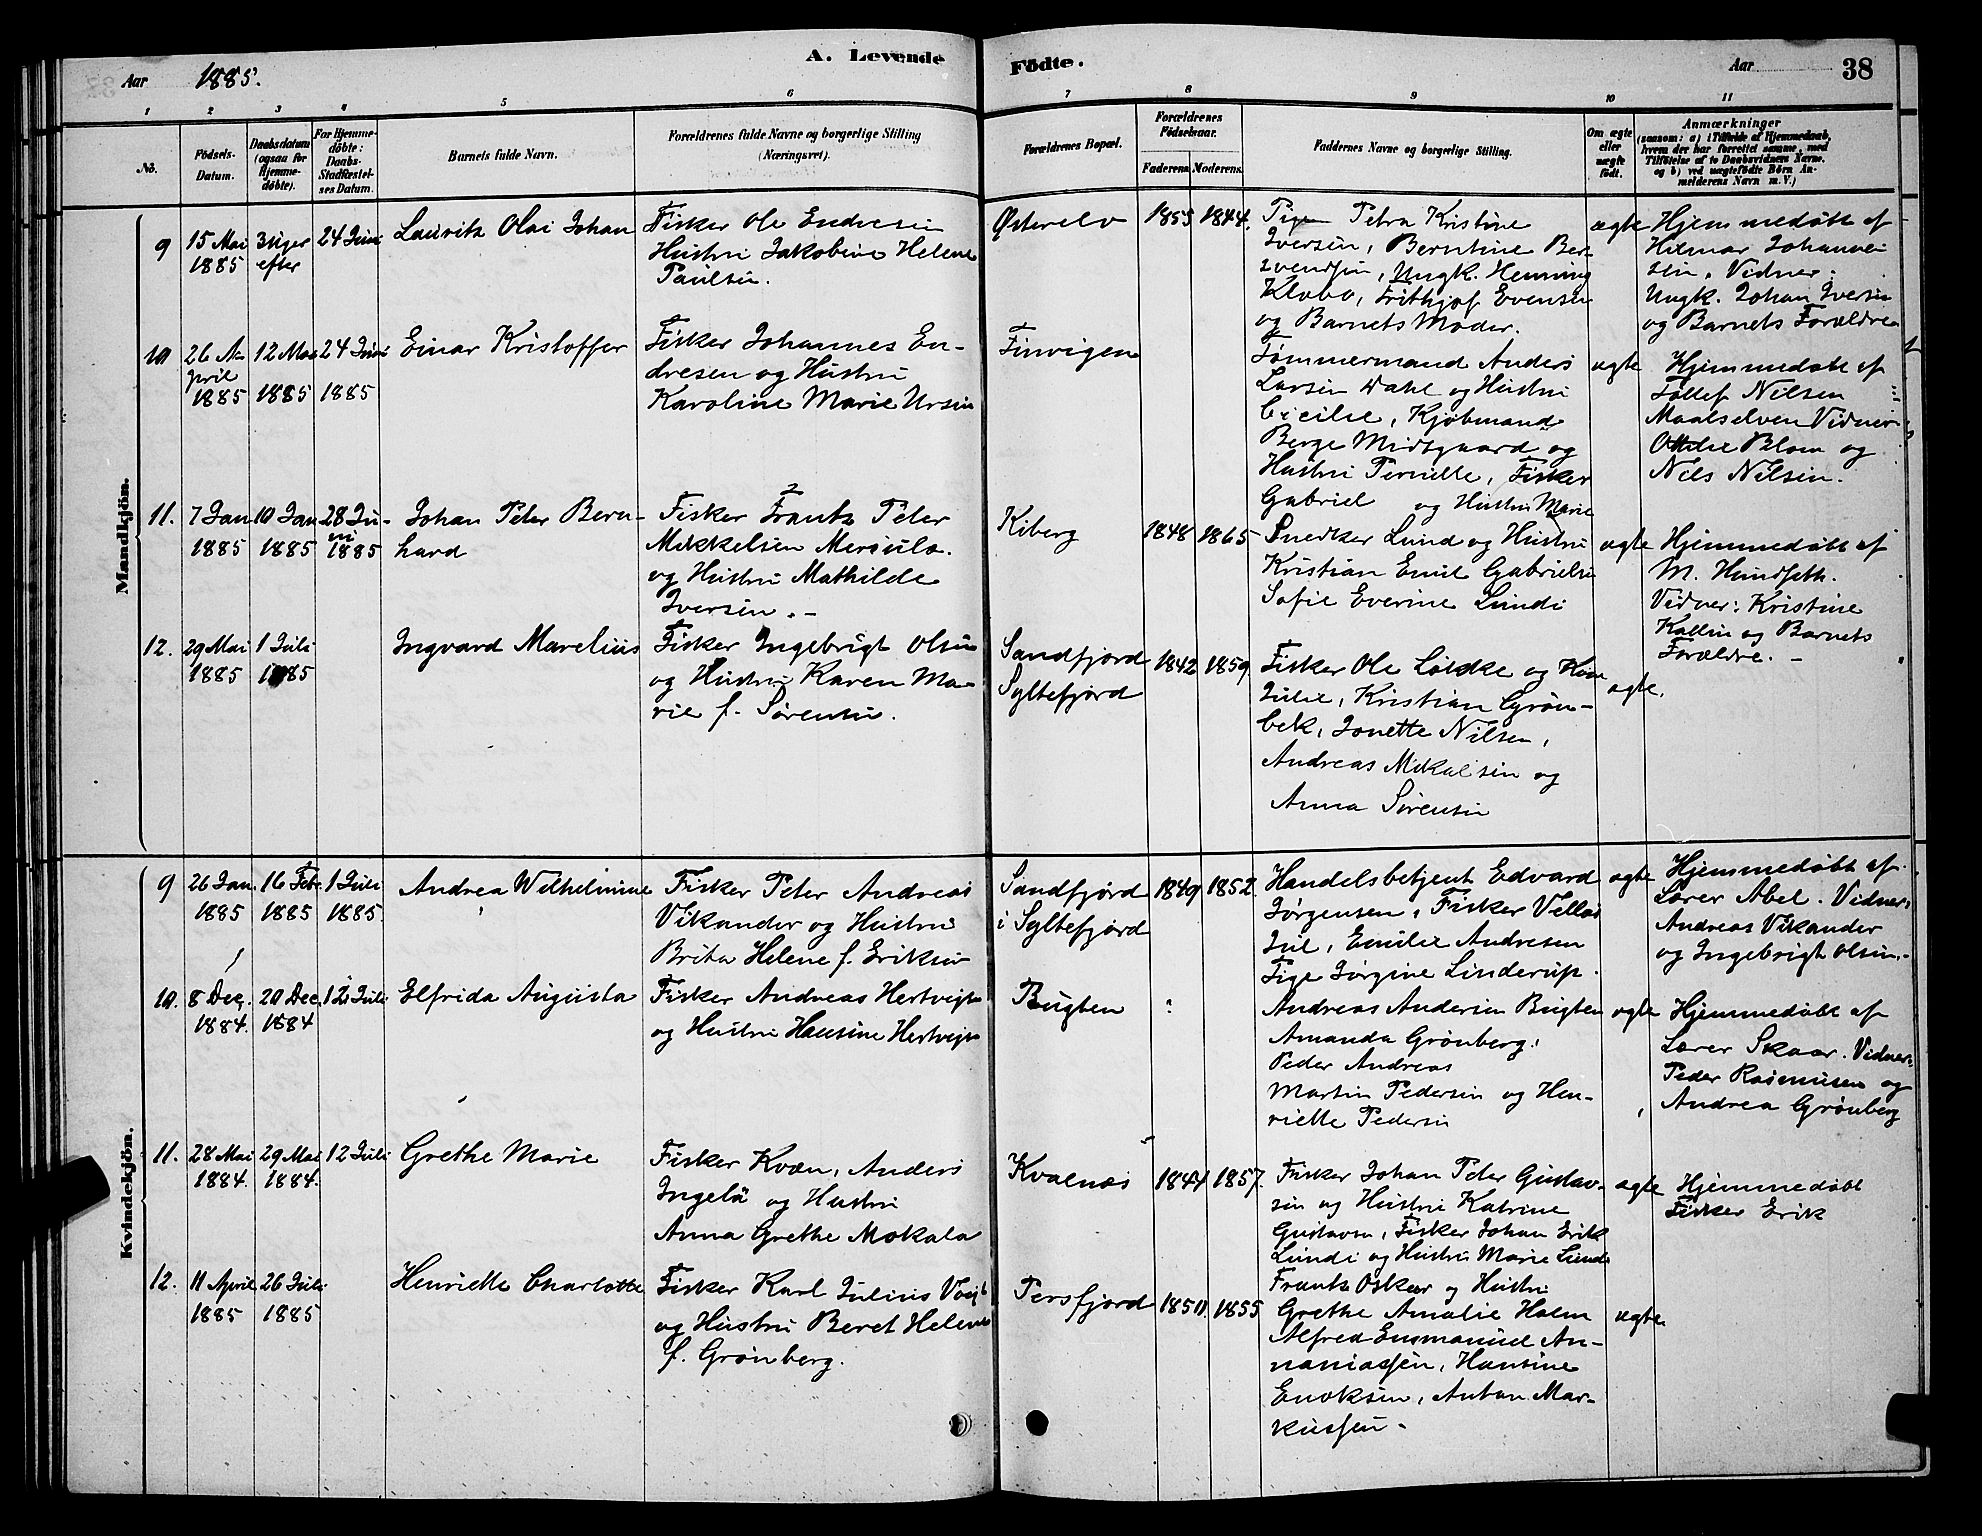 A. Levende
Födte.
Aar 1885.
Aar
38
1 2 3 4 5 6
7 8 9 10 11
No.
Födsels-
Datum.
Daabsdatum
(ogsaa for
Hjemme-
döbte).
For Hjemme-
döbte:
Daabs-
Stadfæstel-
ses Datum.
Barnets fulde Navn.
Forældrenes fulde Navne og borgerlige Stilling
(Næringsvei).
Forældrenes Bopæl.
Forældrenes
Födselsaar.
Faderens. Moderens.
Faddernes Navne og borgerlige Stilling.
Om ægte
eller
uægte
födt.
Anmærkninger
(saasom: a) i Tilfælde af Hjemmedaab,
hvem der har forrettet samme, med
Tilföielse af to Daabsvidners Navne,
og b) ved uægtefödte Börn An-
melderens Navn m. V.)
Mandkjön.
9
15 Mai
1885
3 Uger
efter
24 Juni
Lauritz Olai Johan
Fisker Ole Endresen
Hustru Jakobine Helene
Paulsen.
Østerelv
1855 1844.
Pige Petra Kristine
Iversen, Berntine Ber
svendsen, Ungk. Henning
Klobo, Frithjof Evensen
og Barnets Moder.
ægte
Hjemmedøbt af
Hilmar Johanne
sen. Vidner:
Ungk. Johan Iversen
og Barnets Forældre
10
26 A
pril
1885
12 Mai
1885
24 Juni
1885
Einar Kristoffer
Fisker Johannes En-
dresen og Hustru
Karoline Marie Ursin
Finvigen
Tømmermand Anders
Larsen Dahl og Hustru
Cicilie, Kjøbmand
Berge Midtgaard og
Hustru Pernille, Fisker
Gabriel og Hustru Marie
ægte
Hjemmedøbt af
Tollef Nilsen
Maalselven Vidner
Ottilie Blom og
Nils Nilsen.
11.
7 Jan
1885
10 Jan
1885
28 Ju-
ni
1885
Johan Peter Bern-
hard
Fisker Frantz Peter
Mikkelsen Mersula
og Hustru Mathilde
Iversen. -
Kiberg
1848 1865
Snedker Lund og Hustru
Kristian Emil Gabrielse
Sofie Everine Lundi
ægte
Hjemmedøbt af
M. Hundseth.
Vidner: Kristine
Kallin og Barnets
Forældre. -
12.
29 Mai
1885
1 Juli
1885
Ingvard Marelius
Fisker Ingebrigt Olsen
og Hustru Karen Ma-
rie f. Sørensen.
Sandfjord
Syltefjord
1842 1859
Fisker Ole Løkke og Kone
Julie, Kristian Grøn-
bek, Jonette Nilsen,
Andreas Mikalsen og
Anna Sørensen
ægte.
Kvindekjön.
9
26 Jan.
1885
16 Feb.
1885
1 Juli
1885.
Andrea Wilhelmine
Fisker Peter Andreas
Vikander og Hustru
Brita Helene f. Eriksen
Sandfjord
i Syltefjord
1849 1852.
Handelsbetjent Edvard
Jørgensen, Fisker Vellas
Jul, Emilie Andresen
Pige Jørgine Linderup.
ægte
Hjemmedøbt af
Lærer Abel. Vidner:
Andreas Vikander
og Ingebrigt Olsen.-
10.
8 Dec.
1884.
20 Dec.
1884
12 Juli
Elfrida Augusta
Fisker Andreas Hertvigs
og Hustru Hansine Hertvigs
Bugten
Andreas Andersen Bugten
Amanda Grønberg,
Peder Andreas
Martin Pedersen og Hen-
riette Pedersen
ægte
Hjemmedøbt af
Lærer Skaar. Vidner:
Peder Rasmusen og
Andrea Grønberg
11.
28 Mai
1884.
29 Mai
1884.
12 Juli
Grethe Marie
Fisker Kvæn, Anders
Ingelä og Hustru
Anna Grethe Mokala
Kvalnæs
1844 1857.
Fisker Johan Peter Gustav-
sen og Hustru Katrine
Gustavsen, Fisker Johan Erik
Lundi og Hustru Marie Lundi
ægte
Hjemmedøbt
Fisker Erik
12.
11 April
1885
26 Juli
1885
Henriette Charlotte
Fisker Karl Julius Voigt
og Hustru Beret Helene
f. Grønberg.
Persfjord
1850. 1855
Frantz Oskar og Hustru
Grethe Amalie Holm
Alfred Emmanuel An-
naniassen, Hansine
Enoksen, Anton Mar-
kussen -
ægte